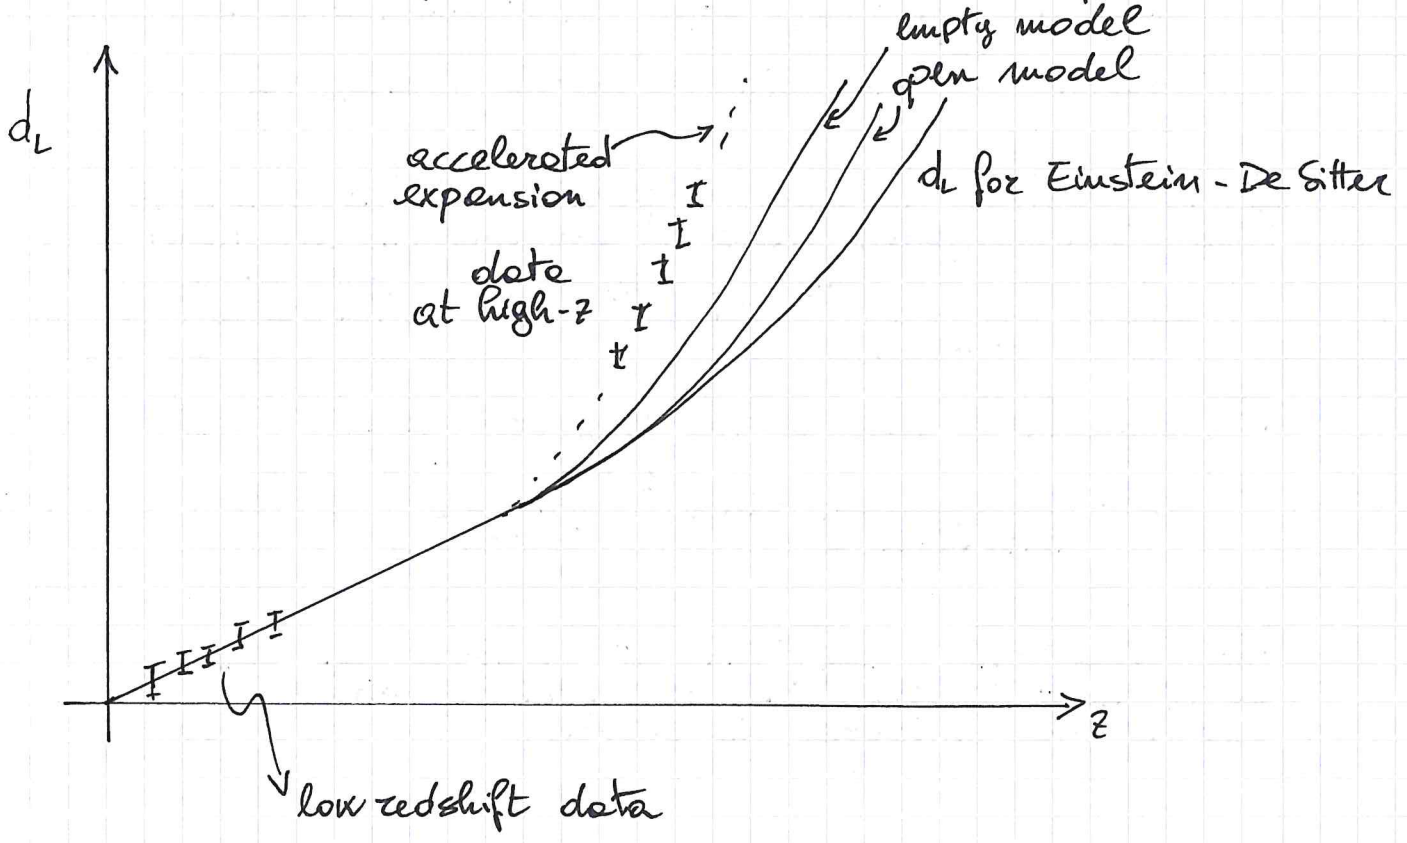 empty model
open model
d_L
accelerated
expansion
d_L for Einstein - De Sitter
data
at high-z
z
low redshift data